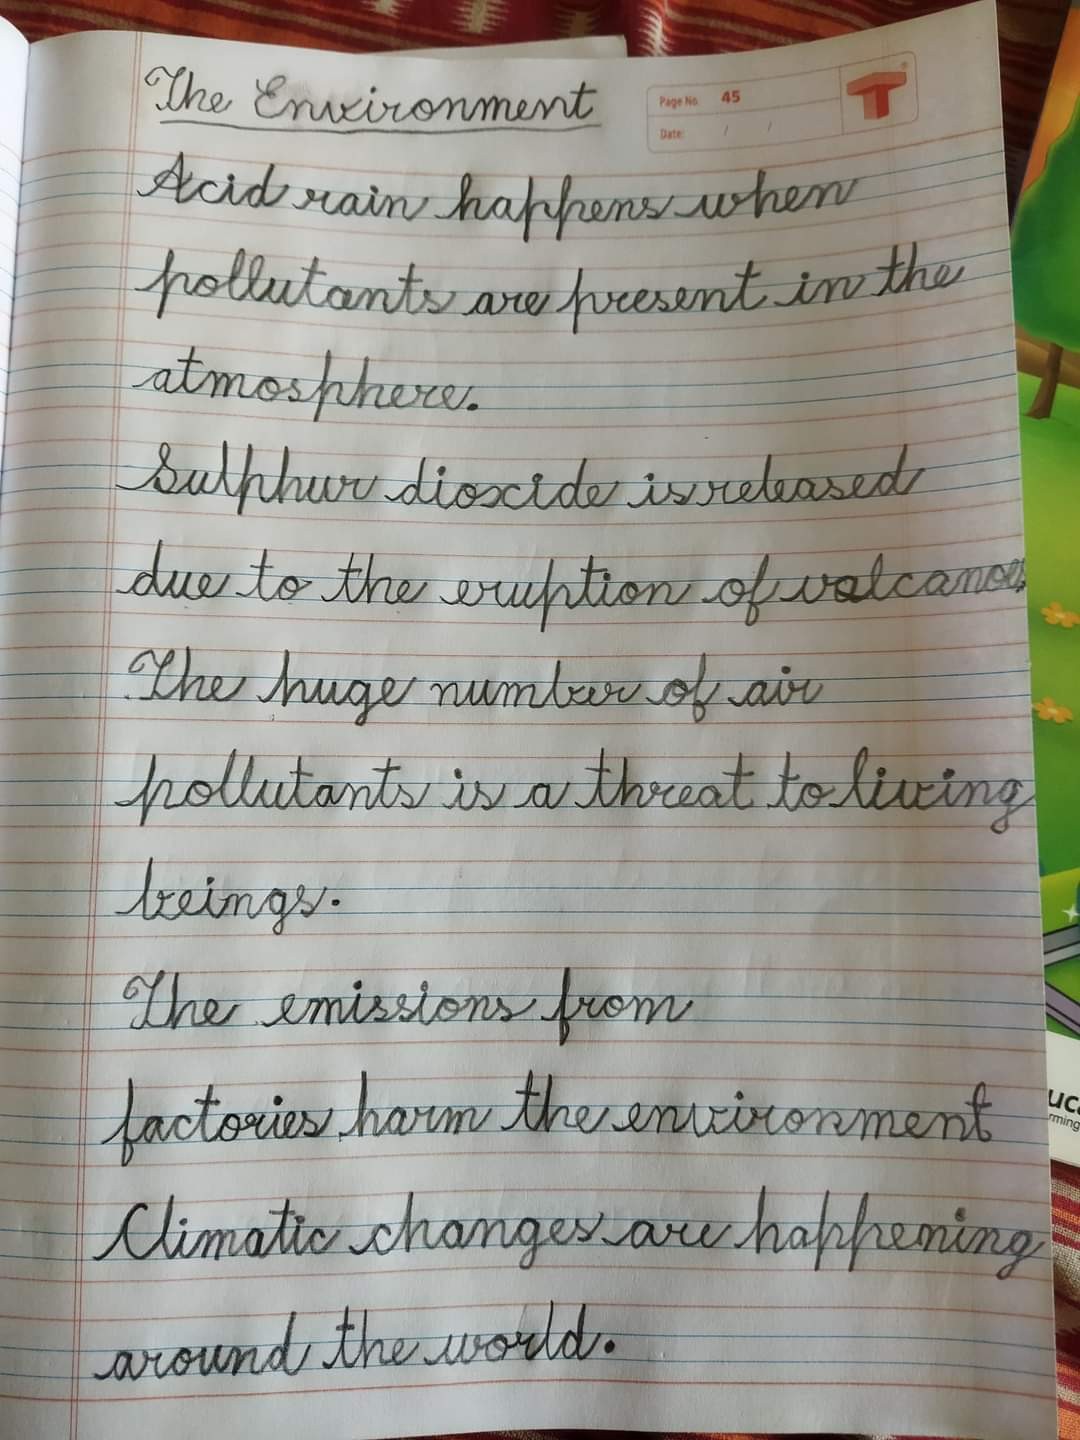 The Environment
Page No. 45
Date: / /
Acid rain happens when
pollutants are present in the
atmosphere.
Sulphur dioxide is released
due to the eruption of valcanoes
The huge number of air
pollutants is a threat to living
beings.
The emissions from
factories harm the environment
Climatic changes are happening
around the world.